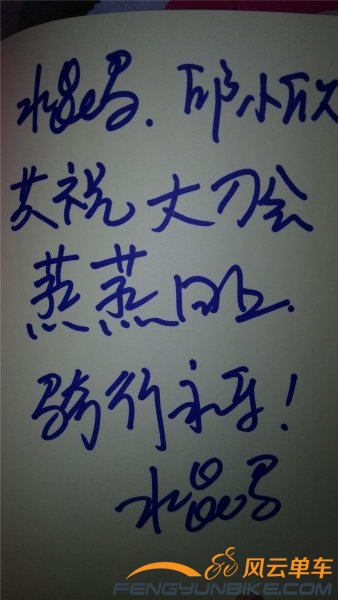 水晶妈. 邱小欣
共祝大刀会
蒸蒸日上.
骑行永乐!
水晶妈
风云单车
FENGYUNBIKE.COM